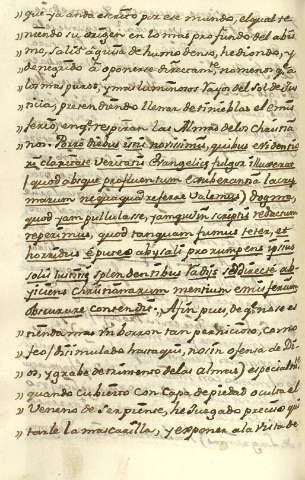 " que ya anda escrito por ese mundo, el qual te
" niendo su origen en lo mas profundo del abis
" mo, salió à guisa de humo denso, hediondo, y
" denegrido à oponerse directam.te no menos q.e a
" los mas puros, y mas luminosos rayos del Sol de Jus
" ticia, pretendiendo llenar de tinieblas el emis
" ferio, en q.e respiran las Almas de los Christia
" nos. Porrò diebus istis novissimis, quibus evidentio
ri claritate Veritatis Evangelicæ fulgor illucerat
(quod absque profluentum exuberantia lacry
marum nequaquam referre valemus) dogma,
quod jam pullulasse, jamque in scriptis redactum
reperimus, quod tanquam fumus teter, et
horridus è puteo abysali prorumpens ipsius
solis lumine splendentibus radijs se directè ob
jiciens Christianarum mentium emisferium
obscurare contendit. Afin pues, de q.e no se ex
" tienda mas un borron tan pernicioso, como
" feo (disimulado hasta aqui, no sin ofensa de Di
" os, y grabe detrimento de las Almas) especialm.te
" quando cubierto con capa de piedad oculta el
" Veneno de Serpiente, he Juzgado preciso qui
" tarle la mascarilla, y exponer à la vista de